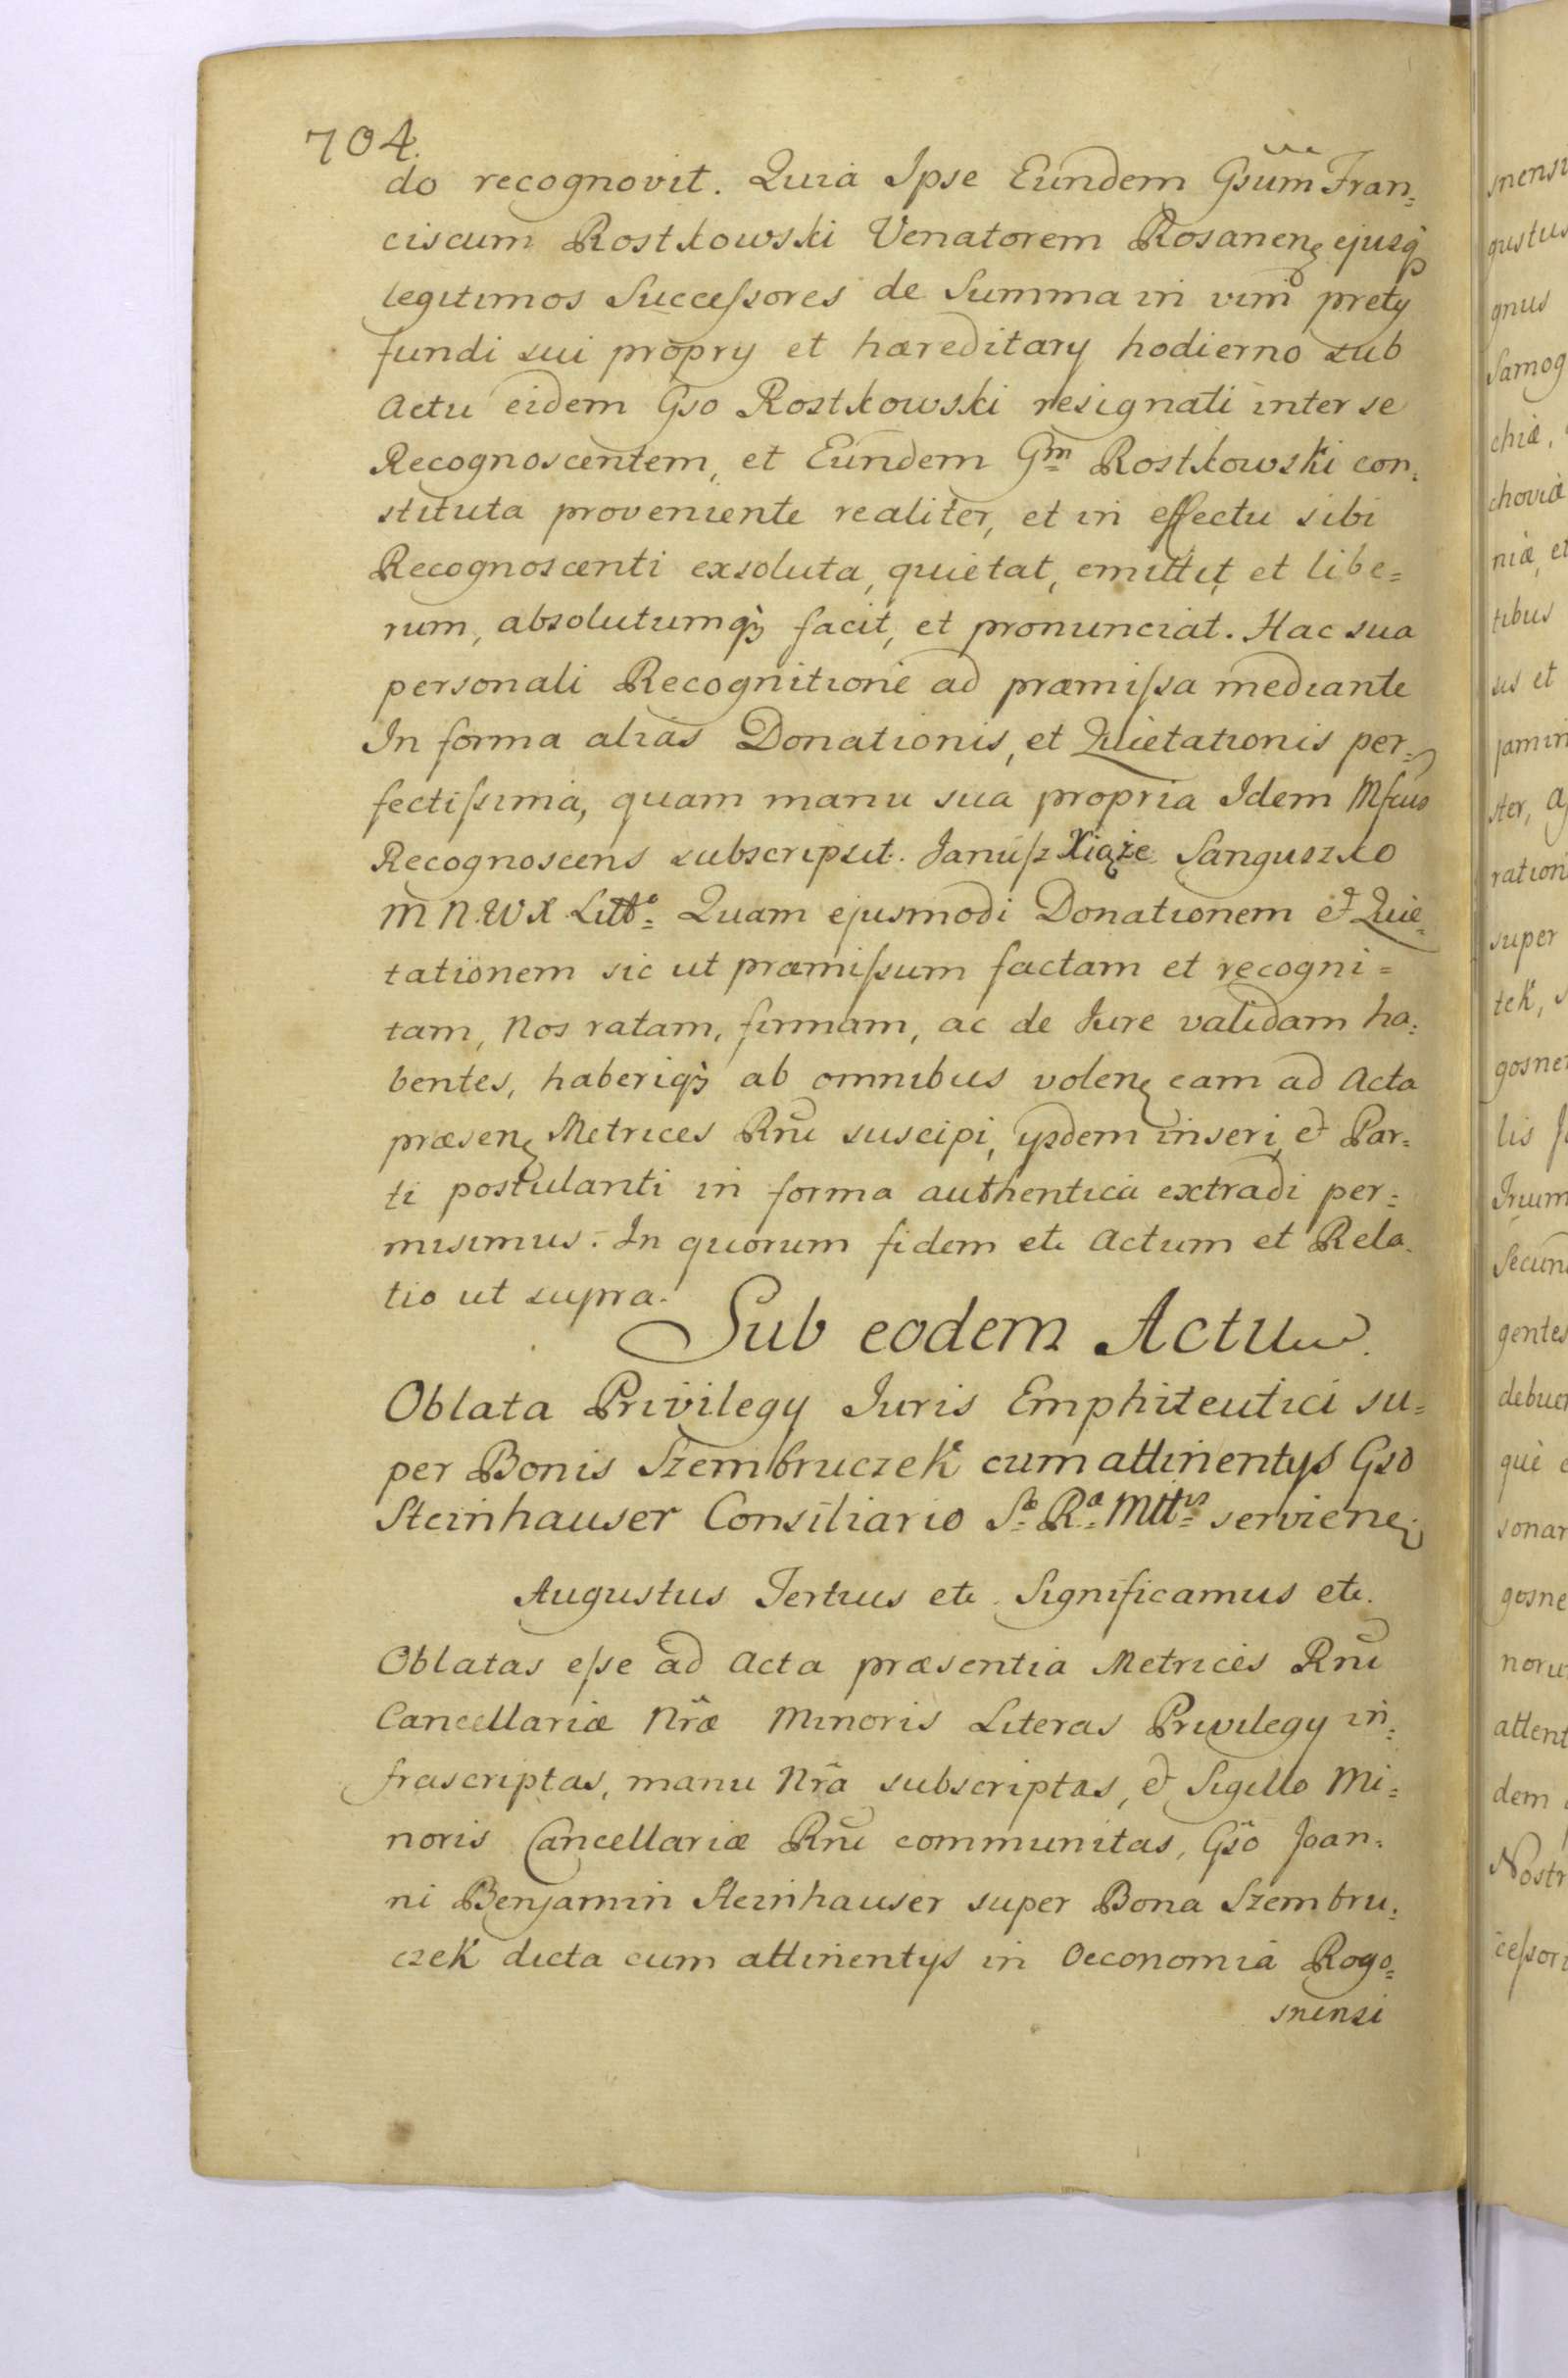 704.
do recognovit. Quia Ipse Eundem Gsum Fran=
ciscum Rostkowski Venatorem Rosanen ejusq
legitimos Successores de Summa in vim prety
fundi sui propry et hæreditary hodierno sub
Actu eidem Gso Rostkowski resignati inter se
Recognoscentem, et Eundem Gm Rostkowski con=
stituta proveniente realiter, et in effectu sibi
Recognoscenti exsoluta, quietat, emittit, et libe=
rum, absolutumq facit, et pronunciat. Hac sua
personali Recognitione ad præmissa mediante
In forma alias Donationis, et Quietationis per=
fectissima, quam manu sua propria Idem Mfcus
Recognoscens subscripsit. Janusz Xiąże Sanguszko
M N. W X Litto. Quam ejusmodi Donationem et Quie=
tationem sic ut præmissum factam et recogni=
tam, Nos ratam, firmam, ac de Jure validam ha=
bentes, haberiq ab omnibus volen eam ad Acta
præsen Metrices Rni suscipi, ysdem inseri, et Par=
ti postulanti in forma authentica extradi per=
misimus. In quorum fidem etc Actum et Rela=
tio ut supra.
Sub eodem Actu.
Oblata Privilegy Juris Emphiteutici su=
per Bonis Szembruczek cum attinentys Gso
Steinhauser Consiliario So Ra Mttis servien
Augustus Tertius etc. Significamus etc.
Oblatas esse ad Acta præsentia Metrices Rni
Cancellariæ Nræ Minoris Literas Privilegy in=
frascriptas, manu Nra subscriptas, et Sigillo Mi=
noris Cancellariæ Rni communitas, Gso Joan=
ni Benjamin Steinhauser super Bona Szembru=
czek dicta cum attinentys in Oeconomia Rogo=
snensi